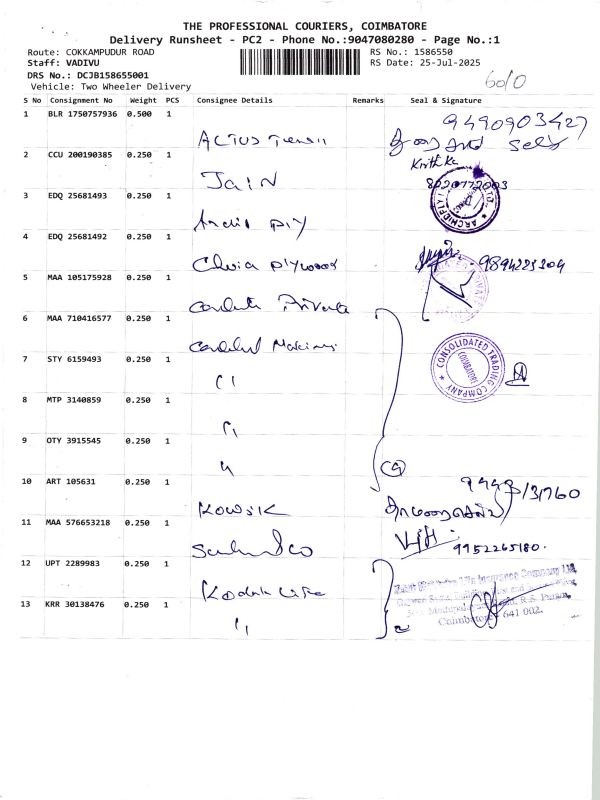 THE PROFESSIONAL COURIERS, COIMBATORE
Delivery Runsheet - PC2 - Phone No.:9047080280 - Page No.:1
Route: COKKAMPUDUR ROAD
RS No.: 1586550
Staff: VADIVU
RS Date: 25-Jul-2025
DRS No.: DCJB158655001
Vehicle: Two Wheeler Delivery
S No Consignment No Weight PCS Consignee Details Remarks Seal & Signature
1 BLR 1750757936 0.500 1 9490903427
2 CCU 200190385 0.250 1 JAIN
3 EDQ 25681493 0.250 1
4 EDQ 25681492 0.250 1 Plywood 9894225204
5 MAA 105175928 0.250 1 Private
6 MAA 710416577 0.250 1
7 STY 6159493 0.250 1 CONSOLIDATED TRADING COMPANY COIMBATORE
8 MTP 3140859 0.250 1
9 OTY 3915545 0.250 1
10 ART 105631 0.250 1 KOWSIK
11 MAA 576653218 0.250 1 9952265180.
12 UPT 2289983 0.250 1 Kodak Life
13 KRR 30138476 0.250 1
Life Insurance Company Ltd
R.S. Puram,
Coimbatore - 641 002.